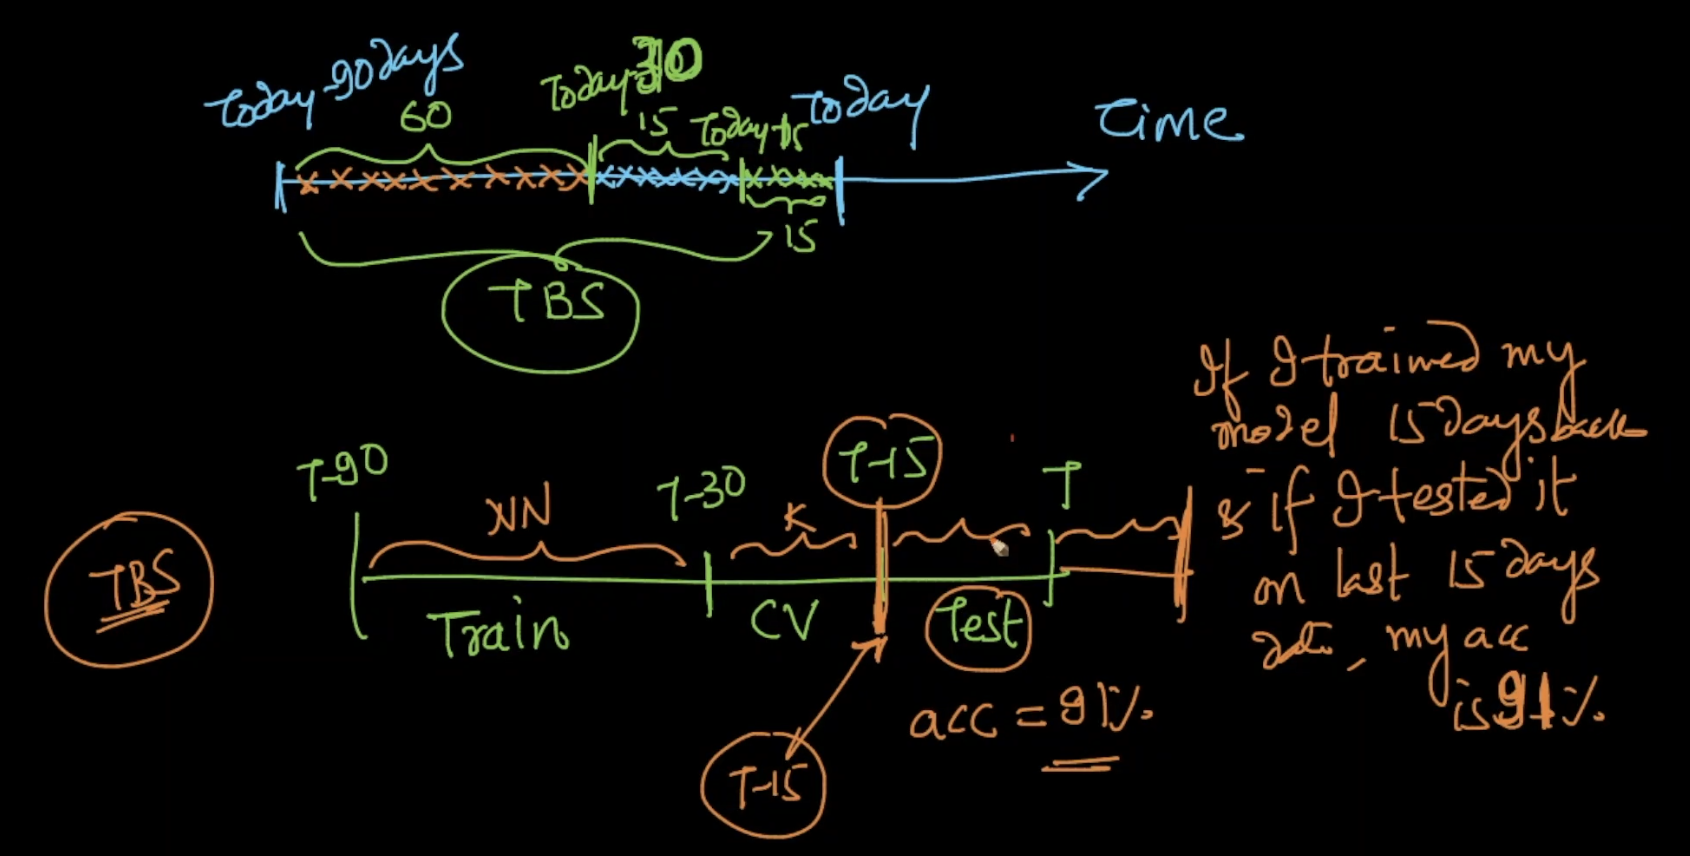 Today-90days
Today-30
Today-15
Today
Time
60
15
15
TBS
T-90
T-30
T-15
T
NN
K
TBS
Train
CV
Test
acc = 91%
T-15
If I trained my
model 15 days back
& if I tested it
on last 15 days
data, my acc
is 91%